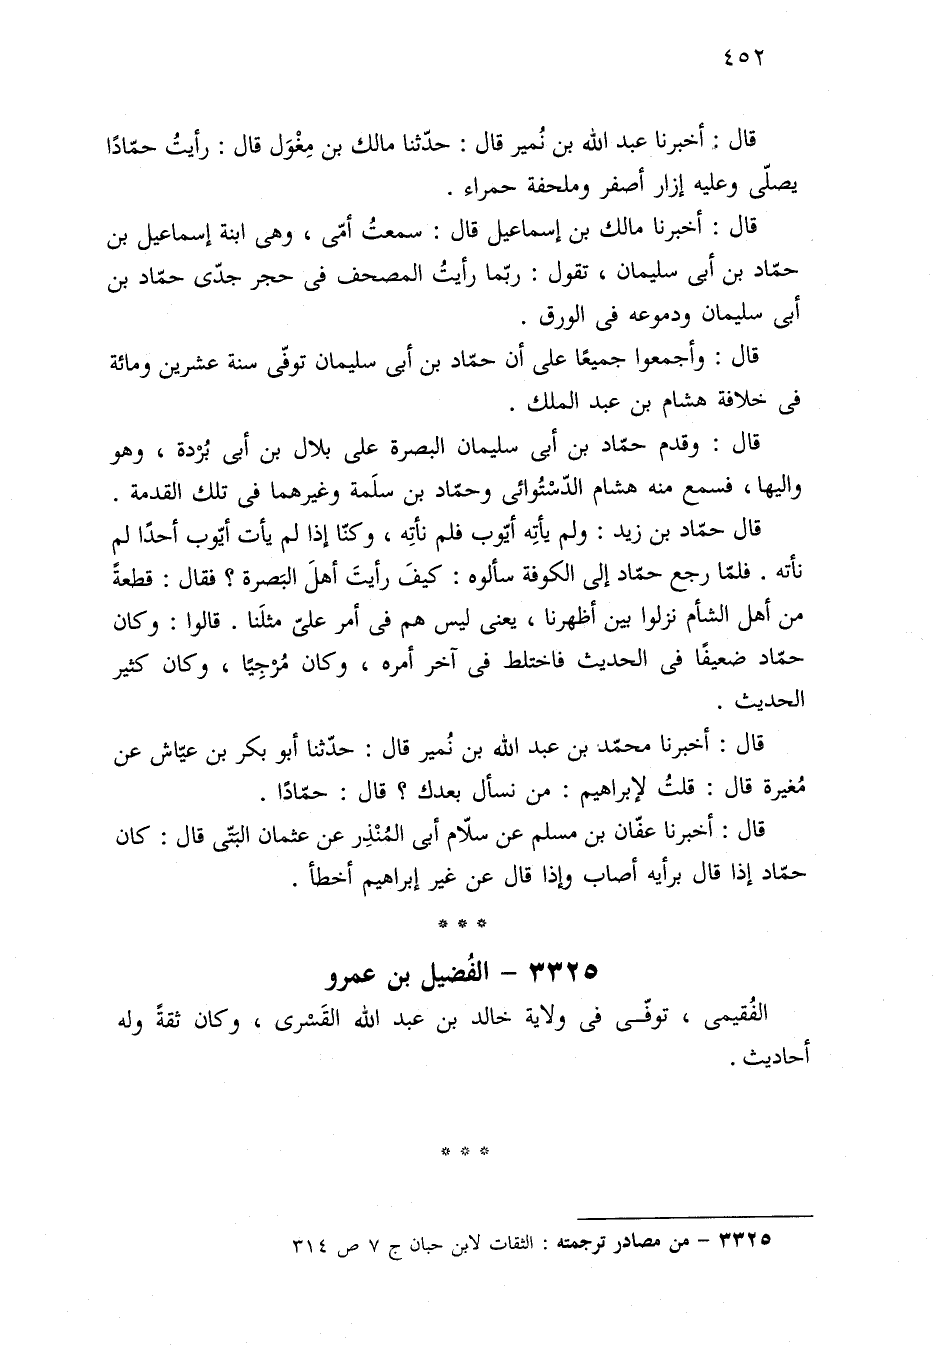 ٤٥٢
قال : أخبرنا عبد الله بن نُمير قال : حدّثنا مالك بن مِغْوَل قال : رأيتُ حمّادًا
يصلّى وعليه إزار أصفر وملحفة حمراء .
قال : أخبرنا مالك بن إسماعيل قال : سمعتُ أمّى ، وهى ابنة إسماعيل بن
حمّاد بن أبى سليمان ، تقول : ربّما رأيتُ المصحف فى حجر جدّى حمّاد بن
أبى سليمان ودموعه فى الورق .
قال : وأجمعوا جميعًا على أن حمّاد بن أبى سليمان توفّى سنة عشرين ومائة
فى خلافة هشام بن عبد الملك .
قال : وقدم حمّاد بن أبى سليمان البصرة على بلال بن أبى بُرْدة ، وهو
واليها ، فسمع منه هشام الدّسْتُوائى وحمّاد بن سلَمة وغيرهما فى تلك القدمة .
قال حمّاد بن زيد : ولم يأتِه أيّوب فلم نأتِه ، وكنّا إذا لم يأت أيّوب أحدًا لم
نأته . فلمّا رجع حمّاد إلى الكوفة سألوه : كيفَ رأيتَ أهلَ البَصرة ؟ فقال : قطعةً
من أهل الشأم نزلوا بين أظهرنا ، يعنى ليس هم فى أمر علىّ مثلَنا . قالوا : وكان
حمّاد ضعيفًا فى الحديث فاختلط فى آخر أمره ، وكان مُرْجِيًا ، وكان كثير
الحديث .
قال : أخبرنا محمّد بن عبد الله بن نُمير قال : حدّثنا أبو بكر بن عيّاش عن
مُغيرة قال : قلتُ لإبراهيم : من نسأل بعدك ؟ قال : حمّادًا .
قال : أخبرنا عفّان بن مسلم عن سلّام أبى المُنْذِر عن عثمان البَتّى قال : كان
حمّاد إذا قال برأيه أصاب وإذا قال عن غير إبراهيم أخطأ .
* * *
٣٣٢٥ - الفُضيل بن عمرو
الفُقيمى ، توفّـى فى ولاية خالد بن عبد الله القَسْرى ، وكان ثقةً وله
أحاديث .
* * *
٣٣٢٥ - من مصادر ترجمته : الثقات لابن حبان ج ٧ ص ٣١٤